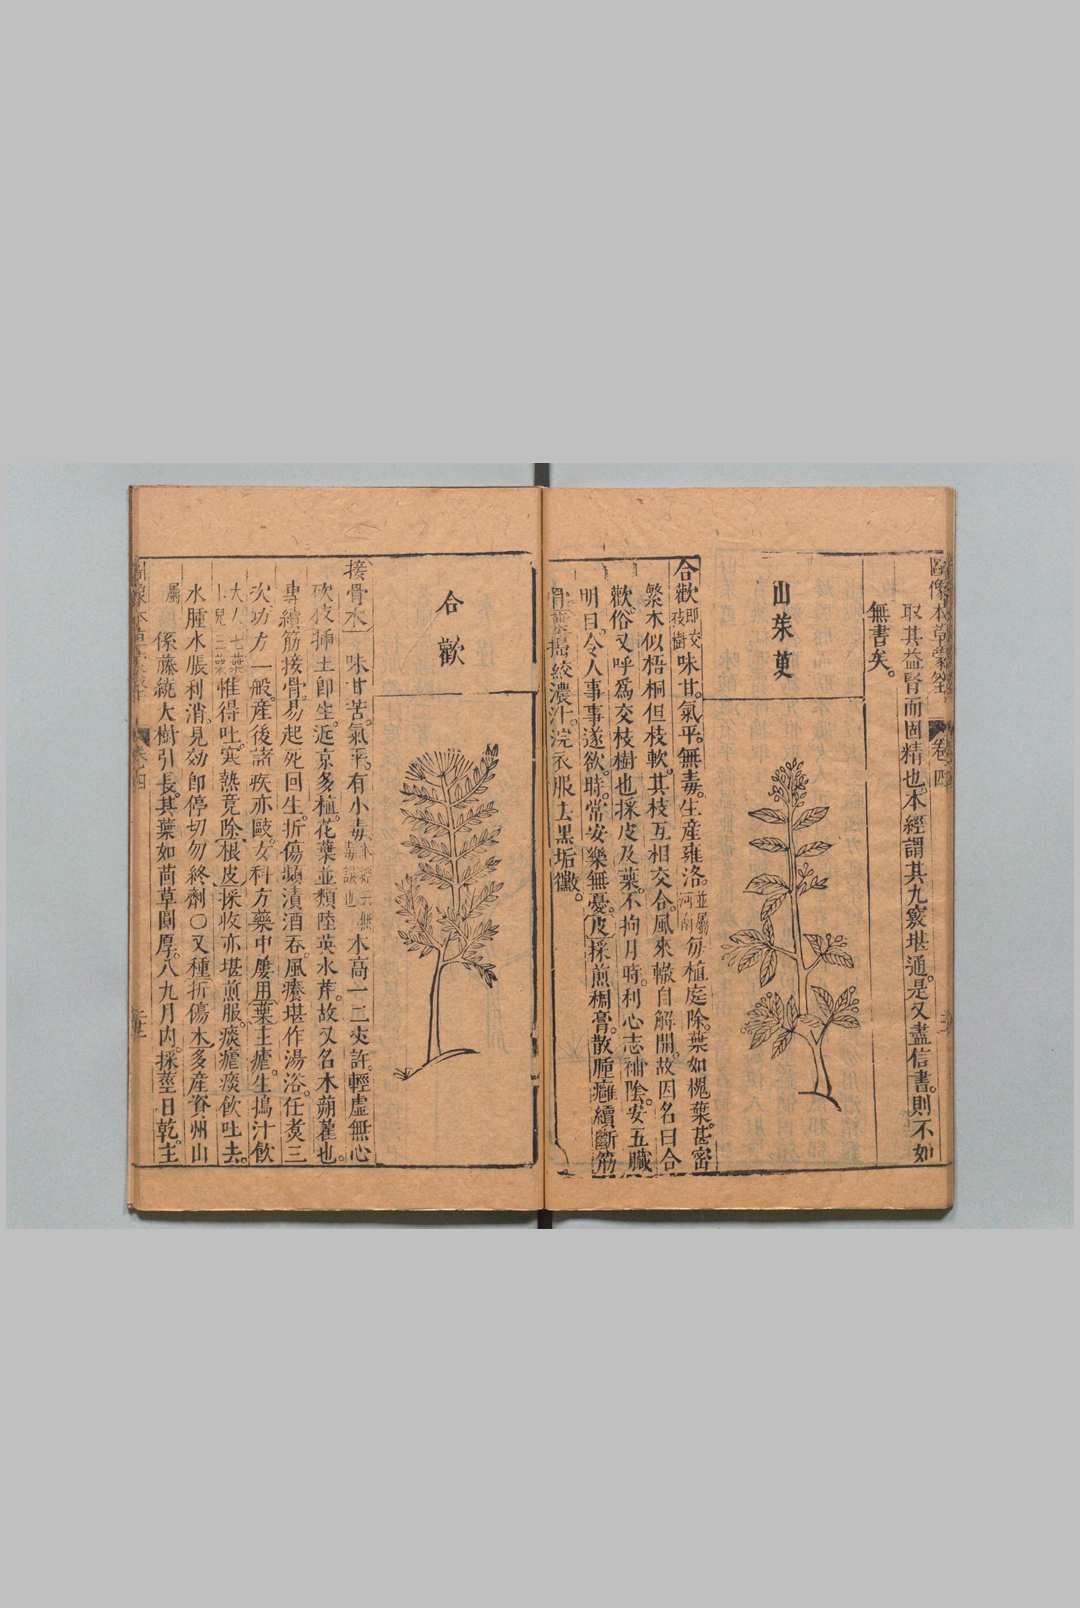 圖像本草蒙筌 卷四
取其益腎而固精也。本經謂其九竅堪通。是又盡信書。則不如
無書矣。
山茱萸
合歡即交枝樹味甘。氣平。無毒。生產雍洛。並屬河南勿植庭除。葉如槐葉。甚密
繁。木似梧桐但枝軟。其枝互相交合。風來輙自解開。故因名曰合
歡。俗又呼為交枝樹也。採皮及葉。不拘月時。利心志補陰。安五臟
明目。令人事事遂欲。時常安樂無憂。皮採煎稠膏。散腫癰續斷筋
骨。葉搗絞濃汁。浣衣服去黑垢黴。
合歡
接骨木 味甘苦。氣平。有小毒木高一二丈許。輕虛無心
砍枝插土即生。近京多植。花葉並類陸英水芹。故又名木蒴藋也。
專續筋接骨。易起死回生。折傷頻漬酒吞。風癢堪作湯浴。任煮三
次功方一般。產後諸疾亦敺。女科方藥中屢用。葉主瘧。生搗汁飲
大人七葉小兒三葉惟得吐。寒熱竟除。根皮採收亦堪煎服。痰瘧痰飲吐去。
水腫水脹利消。見効即停切勿終劑○又種折傷木多產資州山
屬係藤繞大樹引長。其葉如茵草圓厚。八九月內。採莖日乾。主
圖像本草蒙筌 卷四